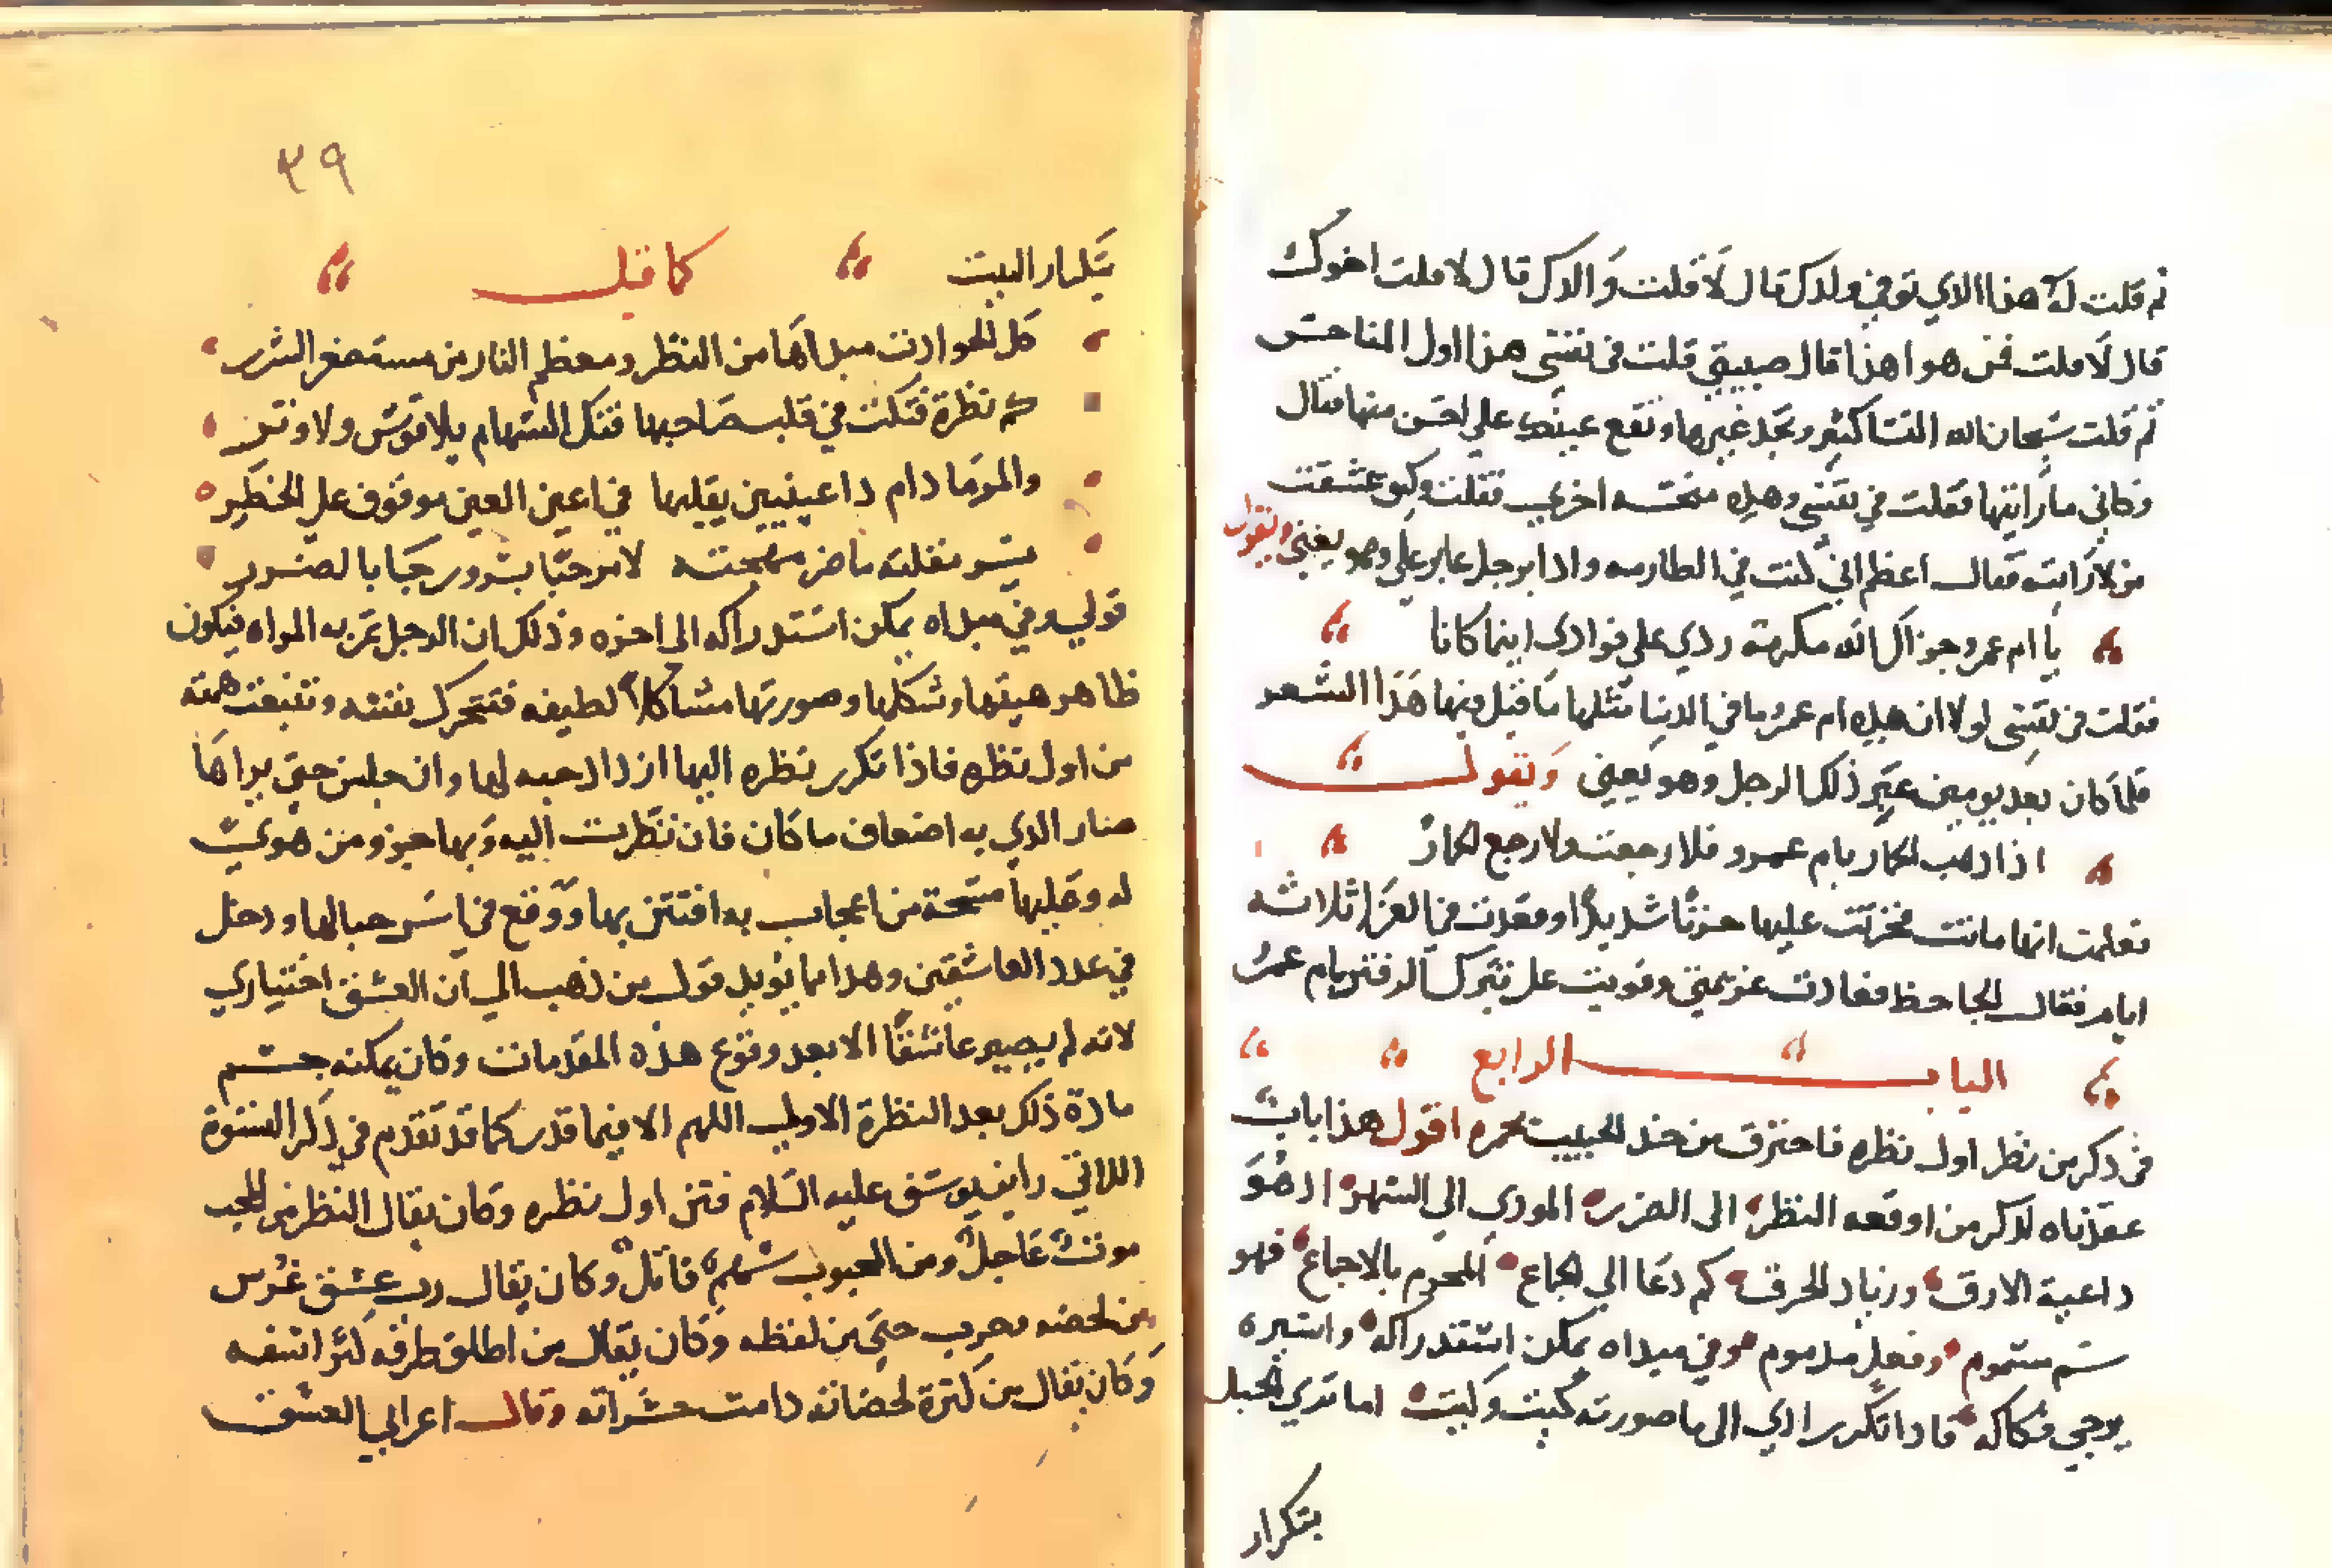 ثم قلت له هذا الذي توفي ولدك قال لا قلت والدك قال لا قلت اخوك
قال لا قلت فمن هو هذا قال حبيبتي قلت في نفسي هذا اول المناحس
ثم قلت سبحان الله النسا كثير وتجد غيرها وتقع عينك علي احسن منها فقال
وكاني ما رايتها فقلت في نفسي وهذه منحسه اخري فقلت وكيف عشقت
من لا رايت فقال اعلم اني كنت في الطارمه واذا برجل عابر علي وهو يغني ويقول
يا ام عمرو جزاك الله مكرمة ردي علي فوادي اينما كانا
فقلت في نفسي لولا ان هذه ام عمرو ما في الدنيا مثلها ما قيل فيها هذا الشعر
فلما كان بعد يومين عبر ذلك الرجل وهو يغني ويقول
اذا ذهب الحمار بام عمرو فلا رجعت ولا رجع الحمار
فعلمت انها ماتت فحزنت عليها حزنا شديدا وقعدت في العزا ثلاثه
ايام فقال الجاحظ فعادت عزيمتي وقويت علي ترك الدفتر بام عمرو
الباب الرابع
في ذكر من نظر اول نظره فاحترق من خد الحبيب بجمره اقول هذا باب
عقدناه لذكر من اوقعه النظر الي الضرر المودي الي السهر اذ هو
داعية الارق وزناد الحرق كم دعا الي الجماع المحرم بالاجماع فهو
سم مسموم وفعل مذموم وفي مبداه يمكن استدراكه واسيره
يرجي فكاكه فاذا تكرر ادي الي ما صورته كيت وكيت اما تري الحبل
بتكرار
٣٩
بتكرار البيت كما قيل
كل الحوادث مبداها من النظر ومعظم النار من مستصغر الشرر
كم نظرة فتكت في قلب صاحبها فتك السهام بلا قوس ولا وتر
والمر ما دام ذا عينين يقلبها في اعين العين موقوف علي الخطر
يسر مقلته ما ضر مهجته لا مرحبا بسرور جا بالضرر
قولي وفي مبداه يمكن استدراكه الي اخره وذلك ان الرجل تمر به المراه فيكون
ظاهر هيتها وشكلها وصورتها مشاكلا لطيفه فتتحرك نفسه وتنبعث همته
من اول نظره فاذا تكرر نظره اليها ازداد حبه لها وان جلس حتي يراها
صار الذي به اضعاف ما كان فان نظرت اليه وبها حيز ومن هويت
له وعليها مسحة من اعجاب به افتتن بها ووقع في اسر حبالها ودخل
في عدد العاشقين وهذا مما يويد قول من ذهب الي ان العشق اختياري
لانه لم يصير عاشقا الا بعد وقوع هذه المقدمات وكان يمكنه حسم
مادة ذلك بعد النظرة الاولي اللهم الا فيما قدر كما قد تقدم في ذكر النسوة
اللاتي راين يوسف عليه السلام فتن اول نظره وكان يقال النظر من المحب
موت عاجل ومن المحبوب سهم قاتل وكان يقال رب عشق غرس
من لحظه وحرب جني من لفظه وكان يقال من اطلق طرفه كثر اسفه
وكان يقال من كثرة لحظاته دامت حسراته وقال اعرابي العشق